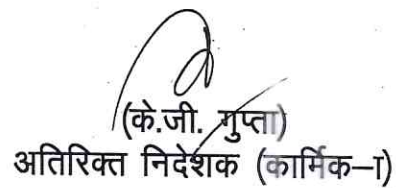 (के.जी. गुप्ता)
अतिरिक्त निदेशक (कार्मिक–I)